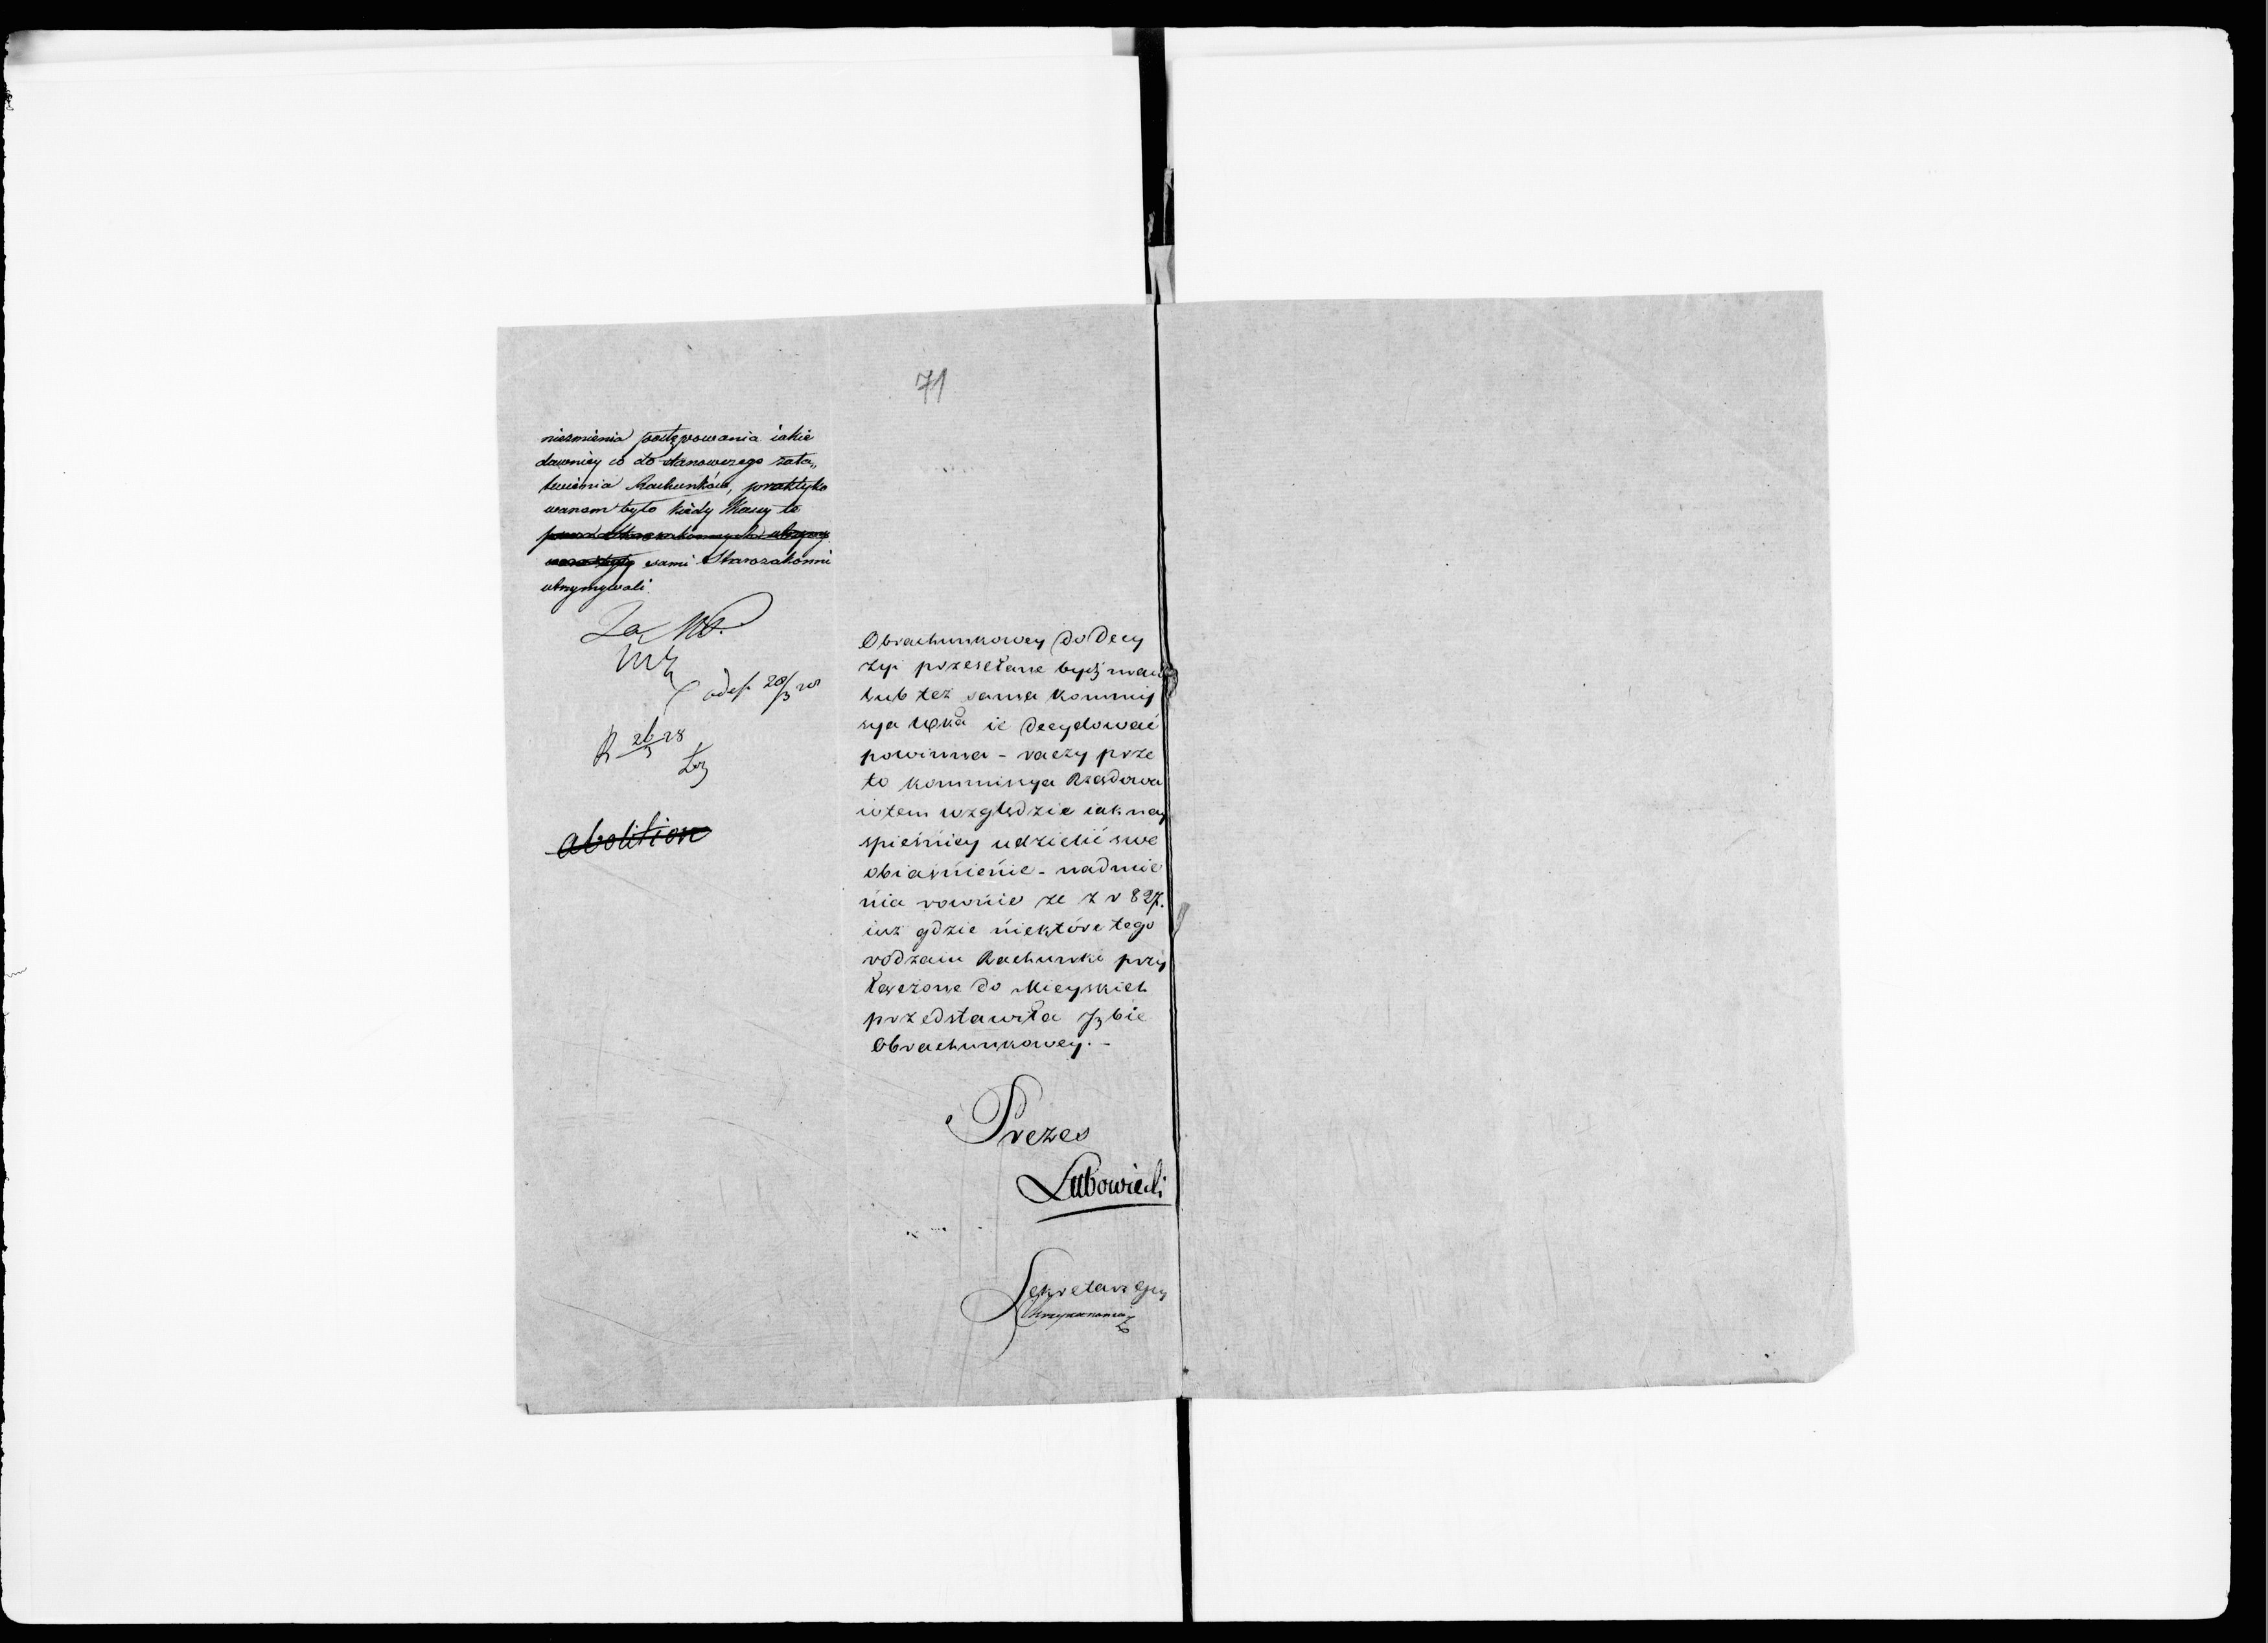 71
niezmienia postępowania iakie
dawniey co do stanowczego zała„
twienia Rachunków, praktyko
wanem było kiedy Kassy te
sami Starozakonni
utrzymywali.
Za
odesł. 20/3 28
R 26/3 28
abolition
Obrachunkowey do Decy
zyi przesełane bydź maią
lub też sama Kommis
sya Wkа ie Decydować
powinna - raczy prze
to Kommissya Rządowa
wtem względzie iak nay
spieśniey udzielić swe
obiaśnienie - nadmie
nia rownie że z r 827.
iuż gdzie niektóre tego
rodzaiu Rachunki przy
łączone do Mieyskich
przedstawiła Jzbie
Obrachunkowey. -
Prezes
Lubowiecki
Sekretarz Jny